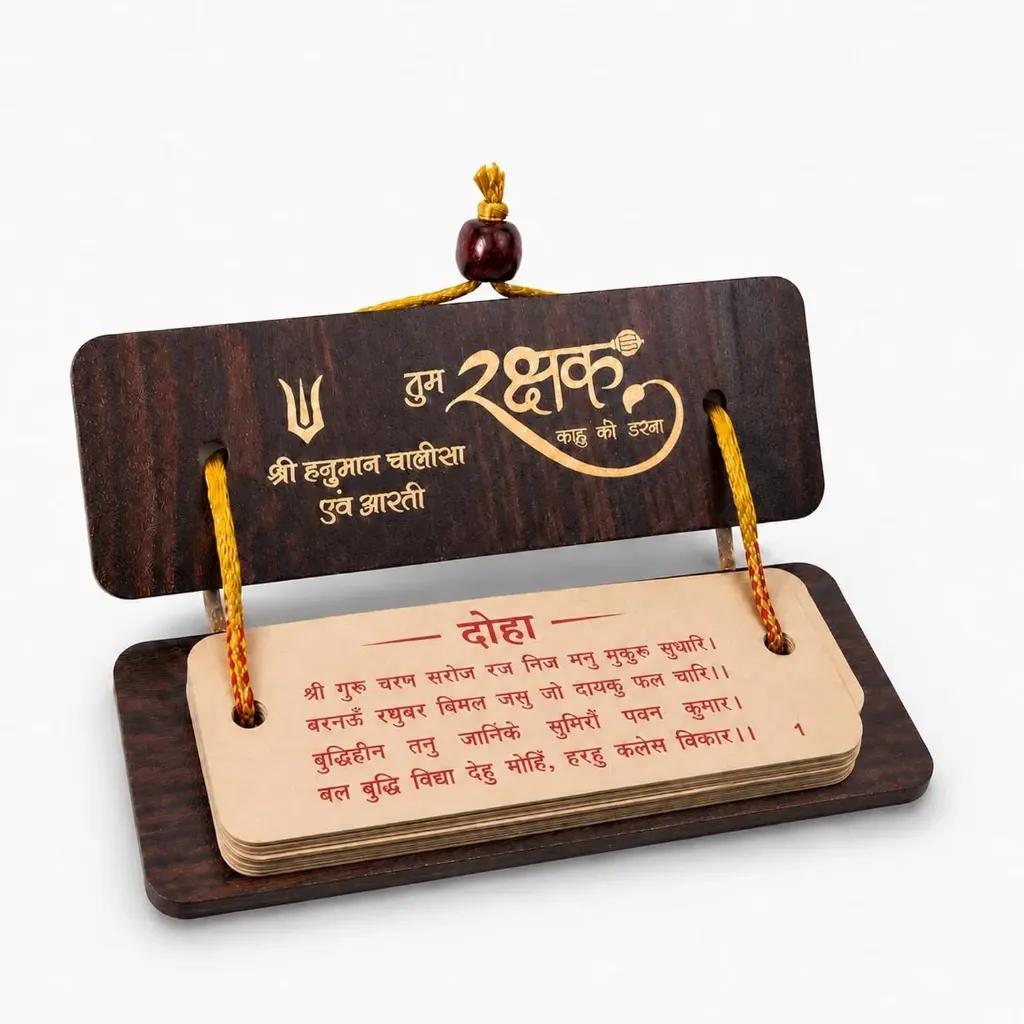 तुम रक्षक
काहु को डरना
श्री हनुमान चालीसा
एवं आरती
दोहा
श्री गुरू चरण सरोज रज निज मनु मुकुरू सुधारि।
बरनऊँ रघुबर बिमल जसु जो दायकु फल चारि।।
बुद्धिहीन तनु जानिंके सुमिरौं पवन कुमार।
बल बुद्धि विद्या देहु मोहिं, हरहु कलेस विकार।।
1